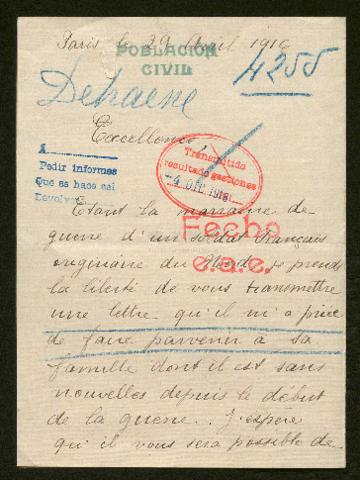 Paris le 29 Avril 1916
POBLACION
CIVIL
4255
Dehaene
Excellence,
A
Pedir informes
Que se hace asi
Devolver
Transmitido
resultado gestiones
4 DIC 1916
Etant la marraine de
guerre d'un soldat français
Fecho
originaire du Nord je prends
c.a.e.
la liberté de vous transmettre
une lettre qu'il m'a priée
de faire parvenir à sa
famille dont il est sans
nouvelles depuis le début
de la guerre. J'espère
qu'il vous sera possible de